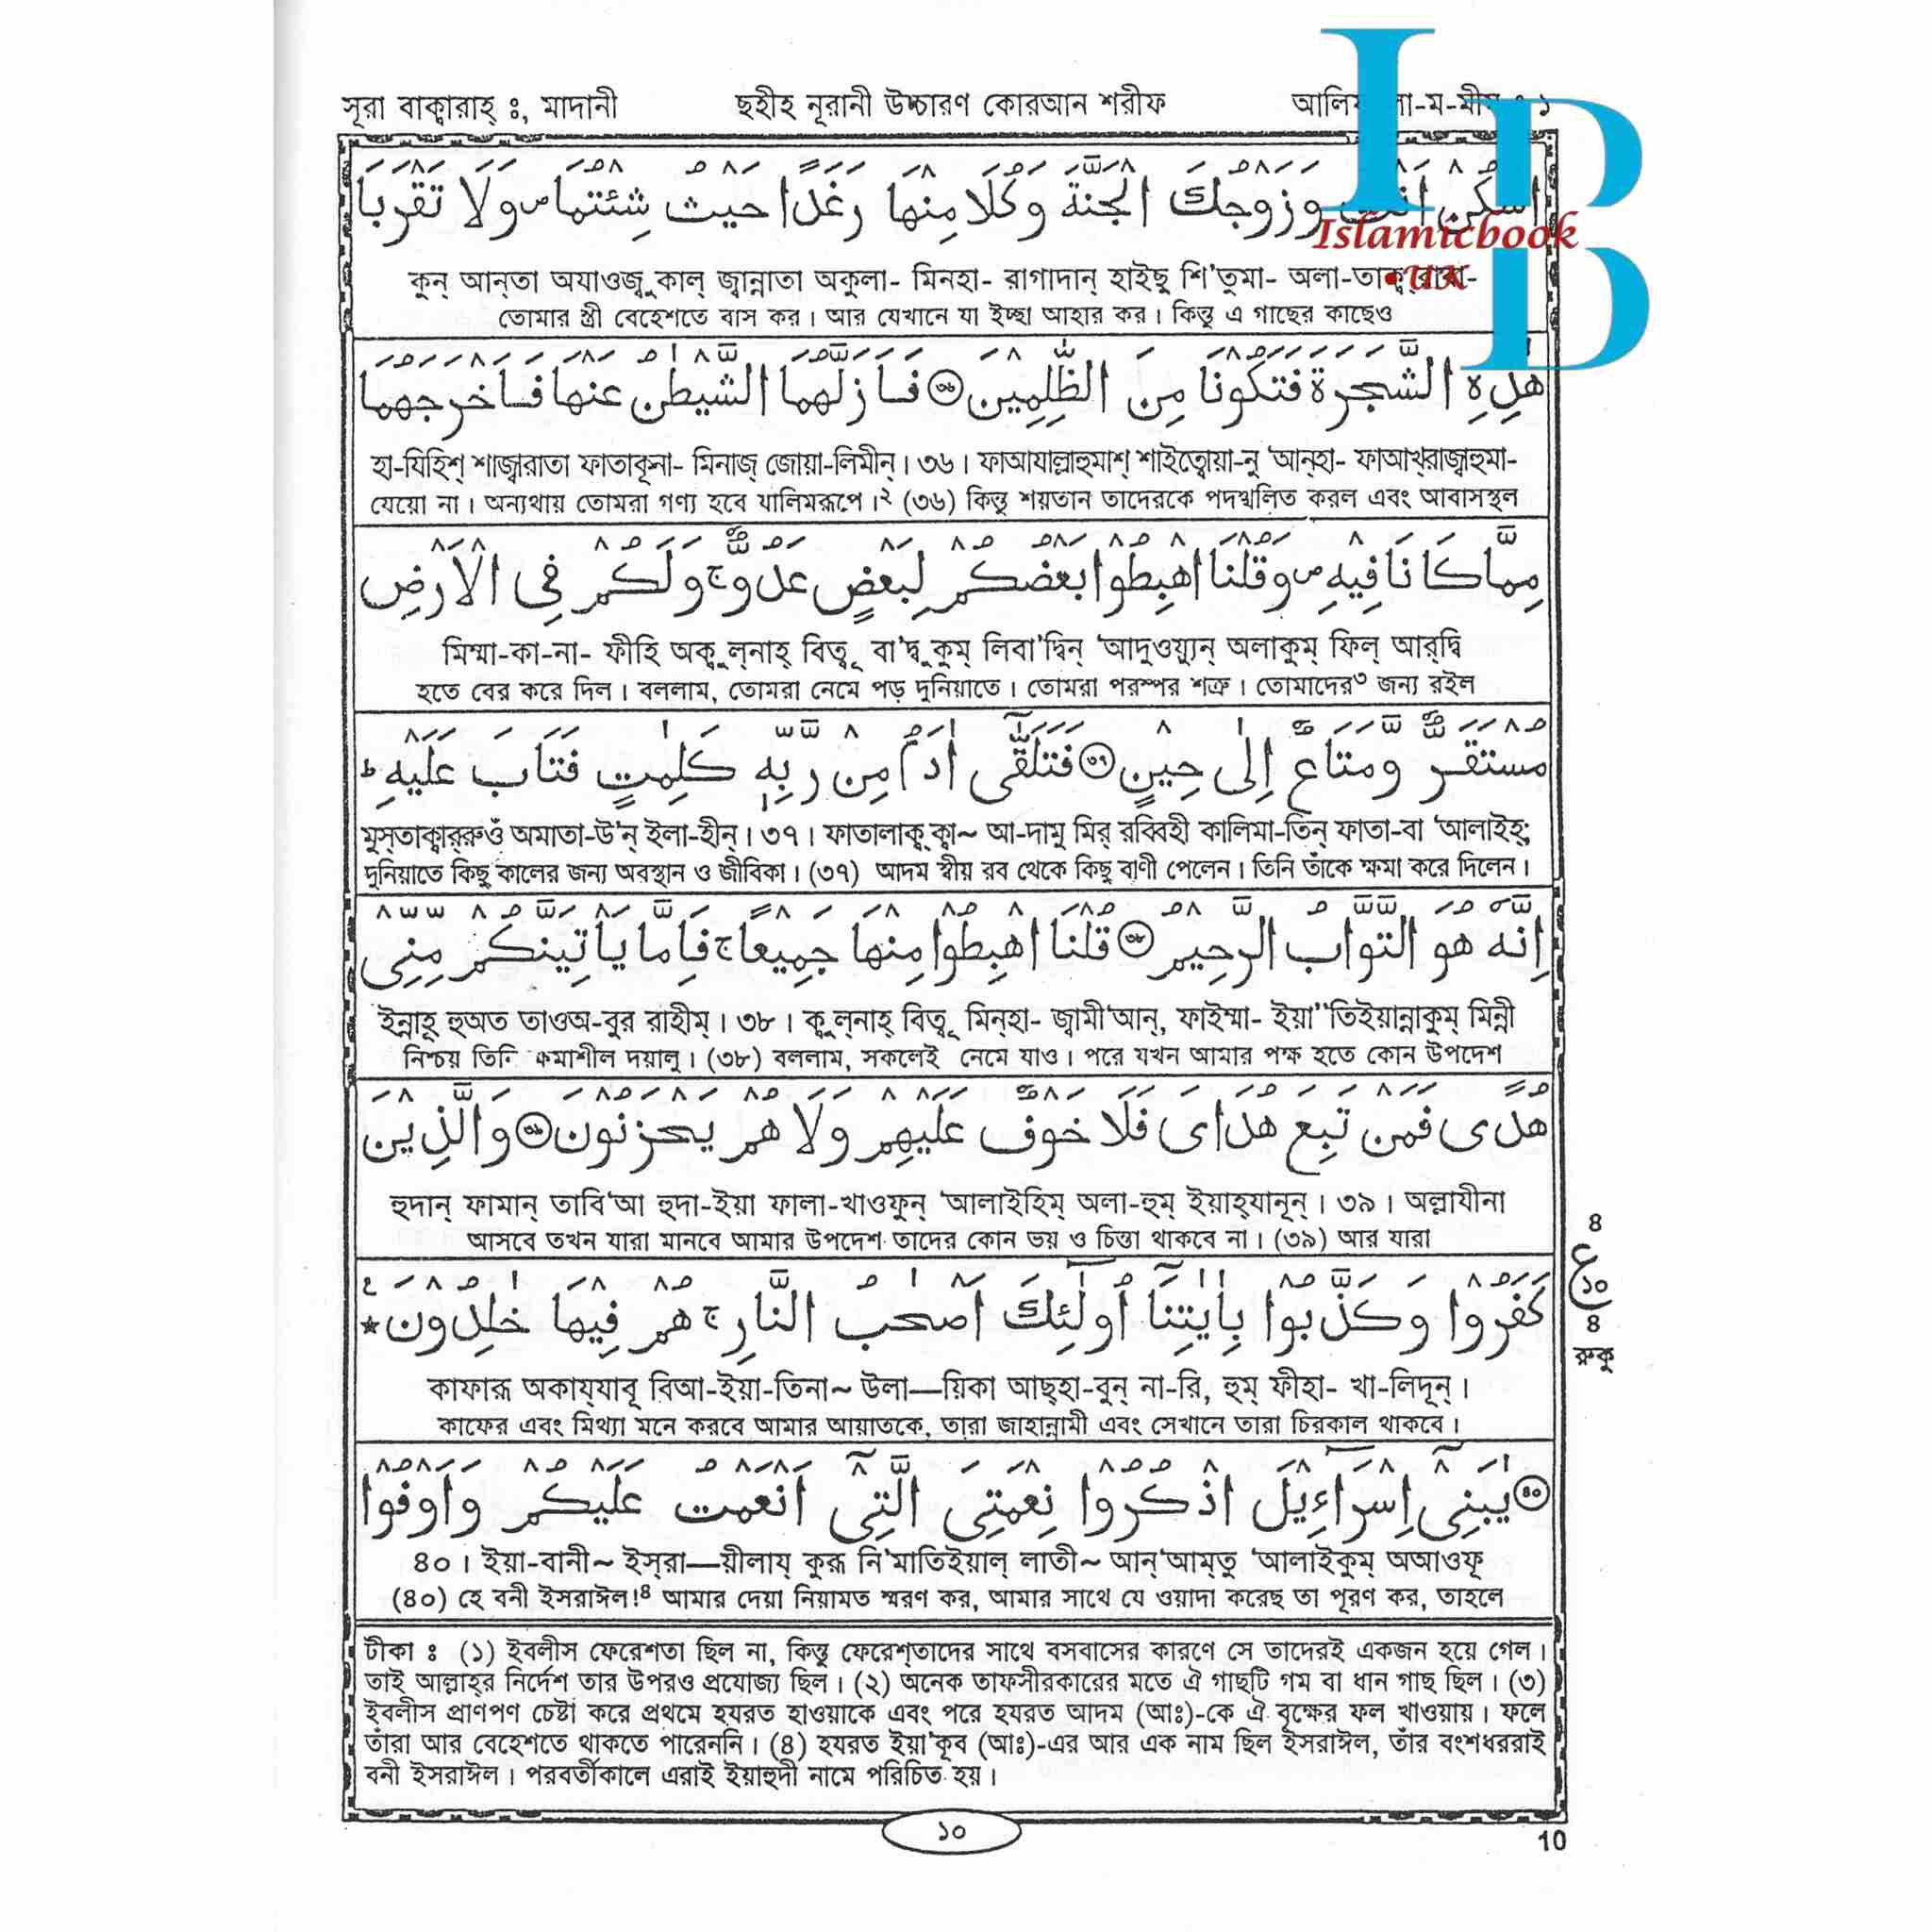 সূরা বাক্বারাহ্ ঃ, মাদানী ছহীহ নূরানী উচ্চারণ কোরআন শরীফ
IBD
Islamicbook
.UK
اسْكُنْ اَنْتَ وَزَوْجُكَ الْجَنَّةَ وَكُلَا مِنْهَا رَغَدًا حَيْثُ شِئْتُمَا ص وَلَا تَقْرَبَا
কুন্ আন্‌তা অযাওজ্বুকাল্ জ্বান্নাতা অকুলা- মিনহা- রাগাদান্ হাইছু শি'তুমা- অলা-তাক্ব্‌রাবা-
তোমার স্ত্রী বেহেশতে বাস কর। আর যেখানে যা ইচ্ছা আহার কর। কিন্তু এ গাছের কাছেও
هٰذِهِ الشَّجَرَةَ فَتَكُوْنَا مِنَ الظّٰلِمِيْنَ ۝٣٦ فَاَزَلَّهُمَا الشَّيْطٰنُ عَنْهَا فَاَخْرَجَهُمَا
হা-যিহিশ্ শাজ্বারাতা ফাতাকূনা- মিনাজ্ জোয়া-লিমীন্। ৩৬। ফাআযাল্লাহুমাশ্ শাইত্বোয়া-নু 'আন্‌হা- ফাআখ্‌রাজ্বাহুমা-
যেয়ো না। অন্যথায় তোমরা গণ্য হবে যালিমরূপে।২ (৩৬) কিন্তু শয়তান তাদেরকে পদস্খলিত করল এবং আবাসস্থল
مِمَّا كَانَا فِيْهِ ص وَقُلْنَا اهْبِطُوْا بَعْضُكُمْ لِبَعْضٍ عَدُوٌّ ج وَلَكُمْ فِى الْاَرْضِ
মিম্মা-কা-না- ফীহি অক্বুল্‌নাহ্ বিত্বূ বা'দ্বুকুম্ লিবা'দ্বিন্ 'আদুওয়্যুন্ অলাকুম্ ফিল্ আর্‌দ্বি
হতে বের করে দিল। বললাম, তোমরা নেমে পড় দুনিয়াতে। তোমরা পরস্পর শত্রু। তোমাদের৩ জন্য রইল
مُسْتَقَرٌّ وَّمَتَاعٌ اِلٰى حِيْنٍ ۝٣٧ فَتَلَقّٰىٓ اٰدَمُ مِنْ رَّبِّهٖ كَلِمٰتٍ فَتَابَ عَلَيْهِ ط
মুস্‌তাক্বার্‌রুওঁ অমাতা-উ'ন্ ইলা-হীন্। ৩৭। ফাতালাক্ব্‌ক্বা~ আ-দামু মির্ রব্বিহী কালিমা-তিন্ ফাতা-বা 'আলাইহ্;
দুনিয়াতে কিছু কালের জন্য অবস্থান ও জীবিকা। (৩৭) আদম স্বীয় রব থেকে কিছু বাণী পেলেন। তিনি তাঁকে ক্ষমা করে দিলেন।
اِنَّهٗ هُوَ التَّوَّابُ الرَّحِيْمُ ۝٣٨ قُلْنَا اهْبِطُوْا مِنْهَا جَمِيْعًا ج فَاِمَّا يَاْتِيَنَّكُمْ مِّنِّىْ
ইন্নাহূ হুঅত তাওঅ-বুর রাহীম্। ৩৮। ক্বুল্‌নাহ্ বিত্বূ মিন্‌হা- জ্বামী'আন্, ফাইম্মা- ইয়া"তিইয়ান্নাকুম্ মিন্নী
নিশ্চয় তিনি ক্ষমাশীল দয়ালু। (৩৮) বললাম, সকলেই নেমে যাও। পরে যখন আমার পক্ষ হতে কোন উপদেশ
هُدًى فَمَنْ تَبِعَ هُدَاىَ فَلَا خَوْفٌ عَلَيْهِمْ وَلَا هُمْ يَحْزَنُوْنَ ۝٣٩ وَالَّذِيْنَ
হুদান্ ফামান্ তাবি'আ হুদা-ইয়া ফালা-খাওফুন্ 'আলাইহিম্ অলা-হুম্ ইয়াহ্‌যানূন্। ৩৯। অল্লাযীনা
আসবে তখন যারা মানবে আমার উপদেশ তাদের কোন ভয় ও চিন্তা থাকবে না। (৩৯) আর যারা
كَفَرُوْا وَكَذَّبُوْا بِاٰيٰتِنَآ اُولٰٓئِكَ اَصْحٰبُ النَّارِ ج هُمْ فِيْهَا خٰلِدُوْنَ ع ★
৪
ع
১০
৪
রুকু
কাফারূ অকায্‌যাবূ বিআ-ইয়া-তিনা~ উলা—য়িকা আছ্‌হা-বুন্ না-রি, হুম্ ফীহা- খা-লিদূন্।
কাফের এবং মিথ্যা মনে করবে আমার আয়াতকে, তারা জাহান্নামী এবং সেখানে তারা চিরকাল থাকবে।
۝٤٠ يٰبَنِىْٓ اِسْرَآءِيْلَ اذْكُرُوْا نِعْمَتِىَ الَّتِىْٓ اَنْعَمْتُ عَلَيْكُمْ وَاَوْفُوْا
৪০। ইয়া-বানী~ ইস্‌রা—য়ীলায্ কুরূ নি'মাতিইয়াল্ লাতী~ আন্'আম্‌তু 'আলাইকুম্ অআওফূ
(৪০) হে বনী ইসরাঈল!৪ আমার দেয়া নিয়ামত স্মরণ কর, আমার সাথে যে ওয়াদা করেছ তা পূরণ কর, তাহলে
টীকা ঃ (১) ইবলীস ফেরেশতা ছিল না, কিন্তু ফেরেশ্‌তাদের সাথে বসবাসের কারণে সে তাদেরই একজন হয়ে গেল।
তাই আল্লাহ্‌র নির্দেশ তার উপরও প্রযোজ্য ছিল। (২) অনেক তাফসীরকারের মতে ঐ গাছটি গম বা ধান গাছ ছিল। (৩)
ইবলীস প্রাণপণ চেষ্টা করে প্রথমে হযরত হাওয়াকে এবং পরে হযরত আদম (আঃ)-কে ঐ বৃক্ষের ফল খাওয়ায়। ফলে
তাঁরা আর বেহেশতে থাকতে পারেননি। (৪) হযরত ইয়া'কূব (আঃ)-এর আর এক নাম ছিল ইসরাঈল, তাঁর বংশধররাই
বনী ইসরাঈল। পরবর্তীকালে এরাই ইয়াহুদী নামে পরিচিত হয়।
১০
10